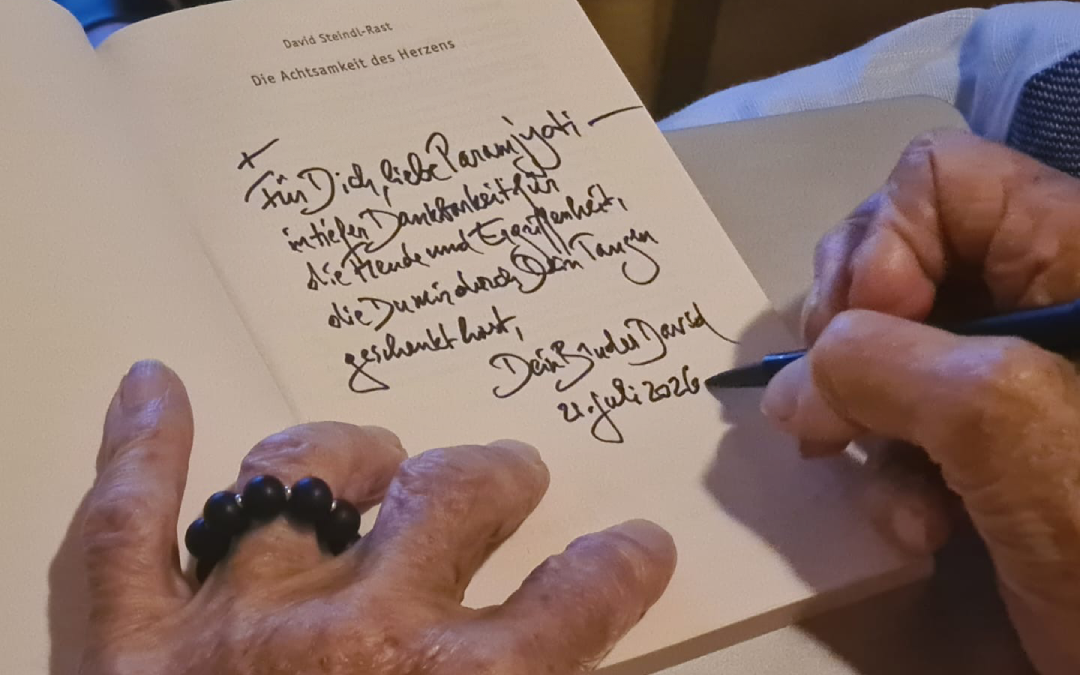 David Steindl-Rast
Die Achtsamkeit des Herzens
+
Für Dich, liebe Paramjyoti —
in tiefer Dankbarkeit für
die Freude und Ergriffenheit,
die Du mir durch Dein Tanzen
geschenkt hast,
Dein Bruder David
21. Juli 2026